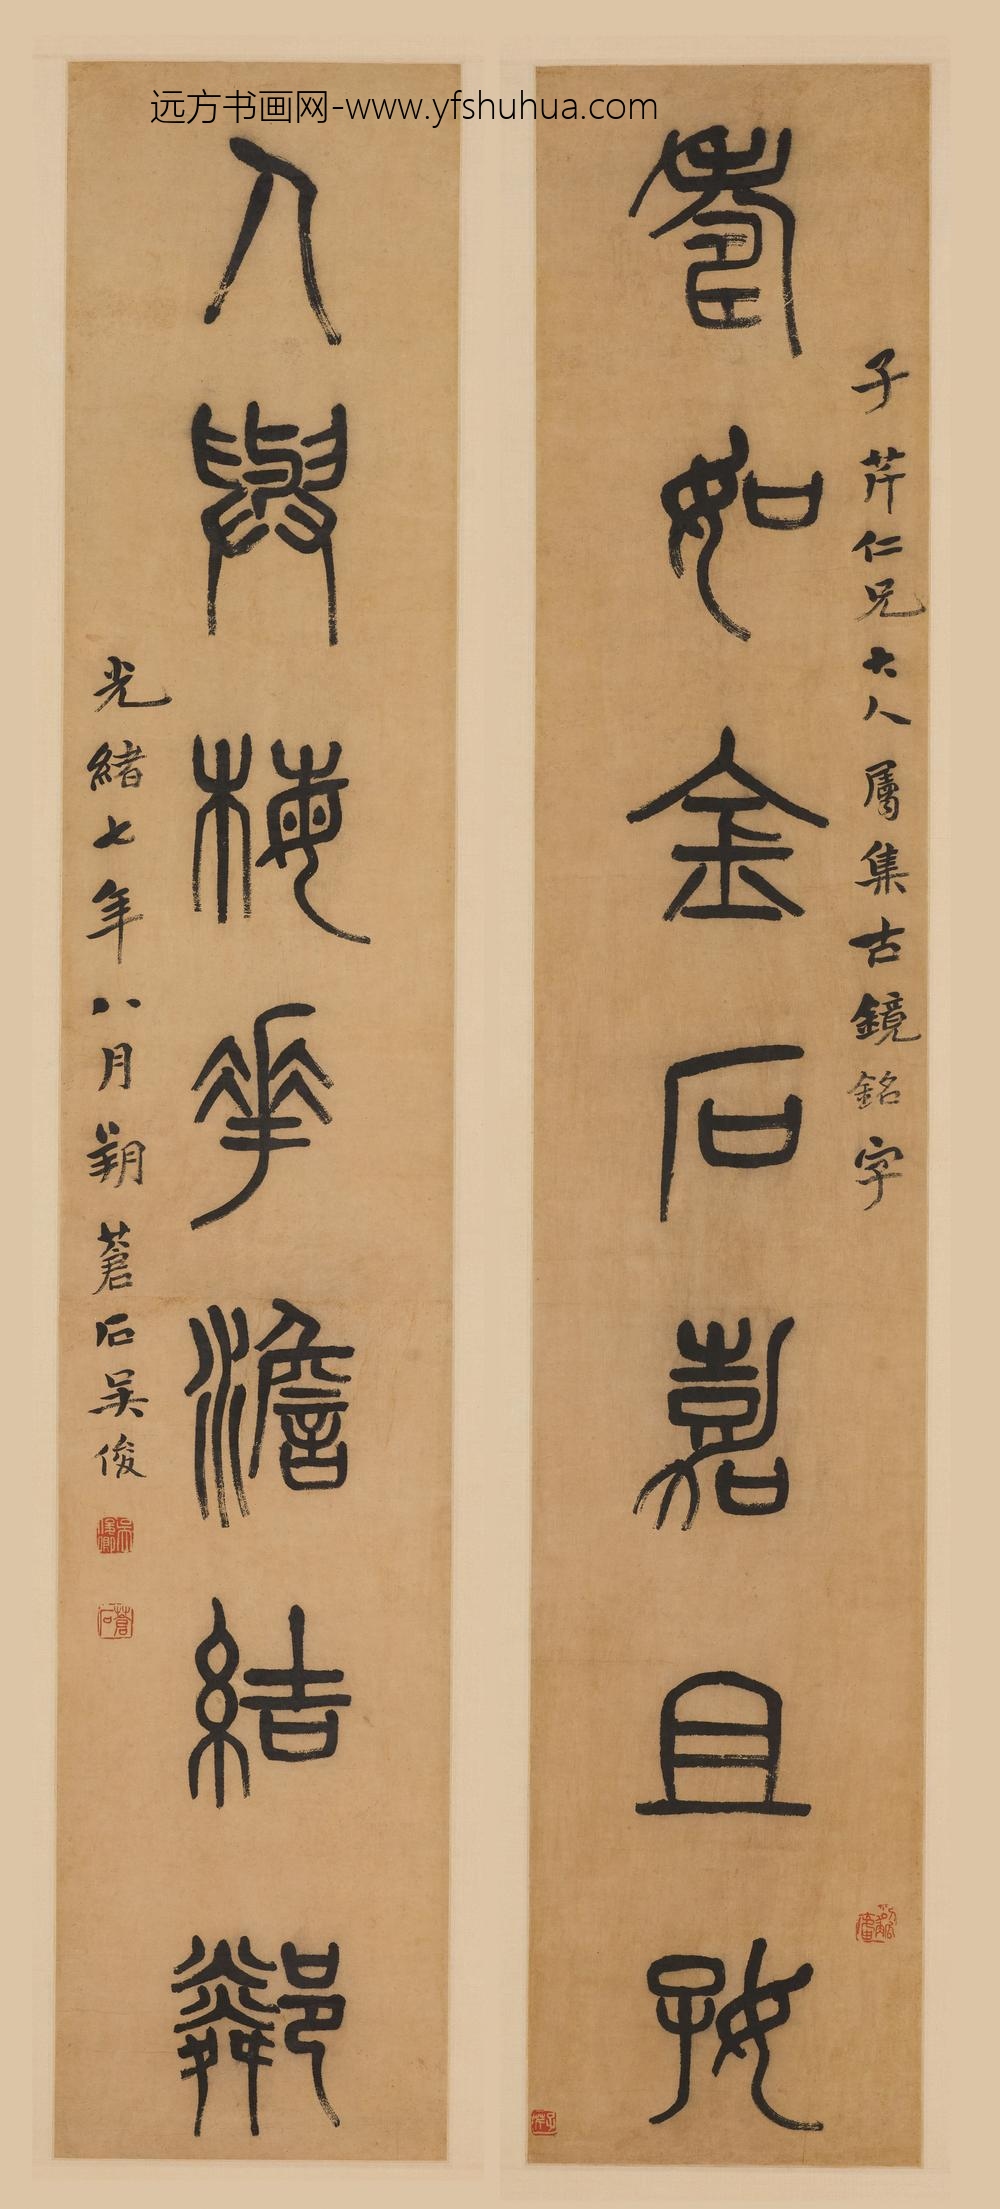 远方书画网-www.yfshuhua.com
子芹仁兄大人属集古鏡銘字
壽如金石嘉且好
人與梅花澹結鄰
光緒七年八月朔蒼石吴俊
蒼石